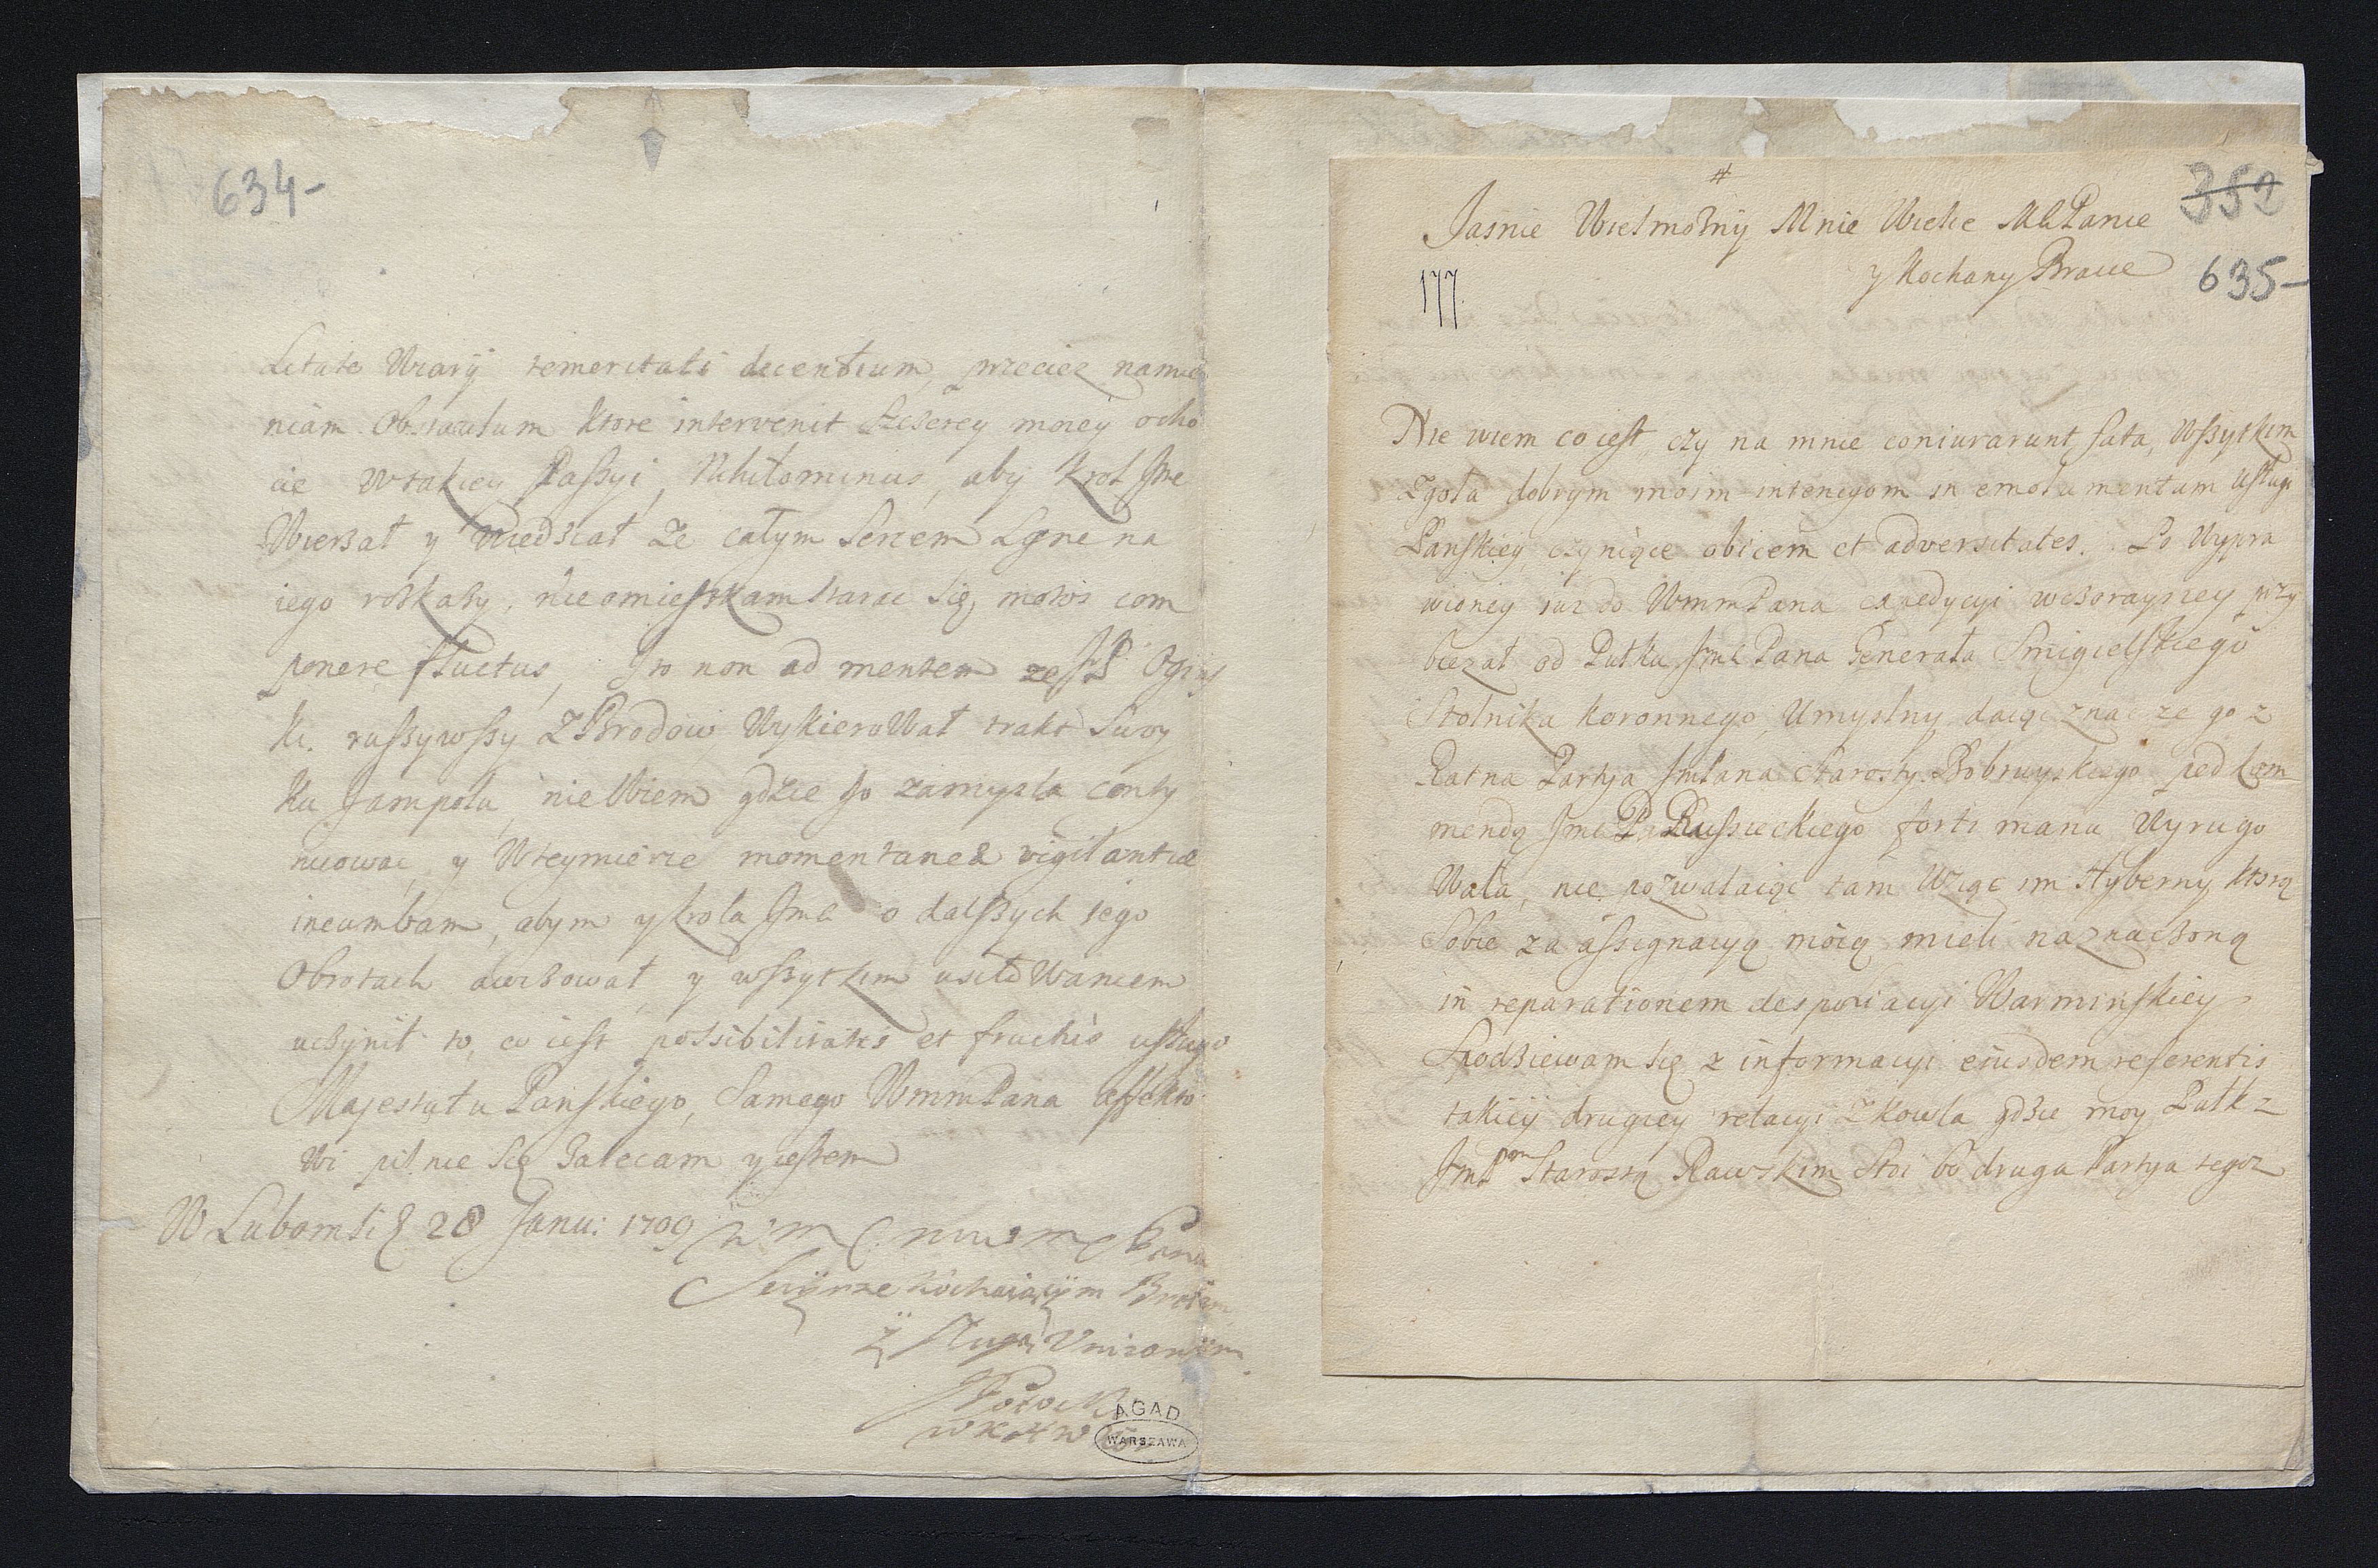 634-
litate Wiary temeritati dicentium, przecież namie
niam Obstaculum ktore intervenit szczerey moiey ocho
cie Wtakiey Passyi, Nihilominus, aby Krol Jme
Wierzał y Wiedział że całym Sercem Lgnę na
iego roskazy, nieomieszkam starac się, motos com
ponere fluctus, Jto non ad mentem że JP Ogiń
ki ruszywszy Z Brodow WykieroWał trakt Swoy
ku Jampolu, nieWiem gdzie go zamysla conty
nuowac, y Wteymierze momentaneæ vigilantiæ
incumbam, abym y krola Jme o dalszych iego
Obrotach awizował, y wszytkim usiłoWaniem
uczynił to, co iest possibilitatis et fructus usługi
Majestatu Panskiego, Samego WmmPana affekto
Wi pilnie się Zalecam y iestem
W Lubomli D 28 Janu: 1709 WM
Pana
Szczyrze kochaiącym Bratem
Y Sługą Vniżonym
Potocki
WKHWK
AGAD
WARSZAWA
352
Jasnie Wielmozny Mnie Wielce MłPanie
y Kochany Bracie
635-
177.
Nie wiem co iest, czy na mnie coniurarunt fata, Wszytkim
zgoła dobrym moim intencyom in emolumentum usługi
Panskiey, czyniące obicem et adversitates. Po Wypra
wioney iuz do WmmPana expedycyi wczorayszey przy
biezał od Pułku Jmć Pana Generała Smigielskiego
Stolnika Koronnego, Umyslny daiąc znac ze go z
Ratna Partya JmPana Starosty Bobruyskiego pod kom
mendą Jmć P. Russieckiego forti manu Wyrugo
Wała, nie pozwalaiąc tam Wziąc im Hyberny, ktorą
Sobie za assignacyą moią mieli naznaczoną
in reparationem despoliacyi Warminskiey,
Spodziewam się z informacyi eiusdem referentis
takiey drugiey relacyi z Kowla gdzie moy Pułk z
JmPPm Starostą Rawskim Stoi bo druga Partya tegoz